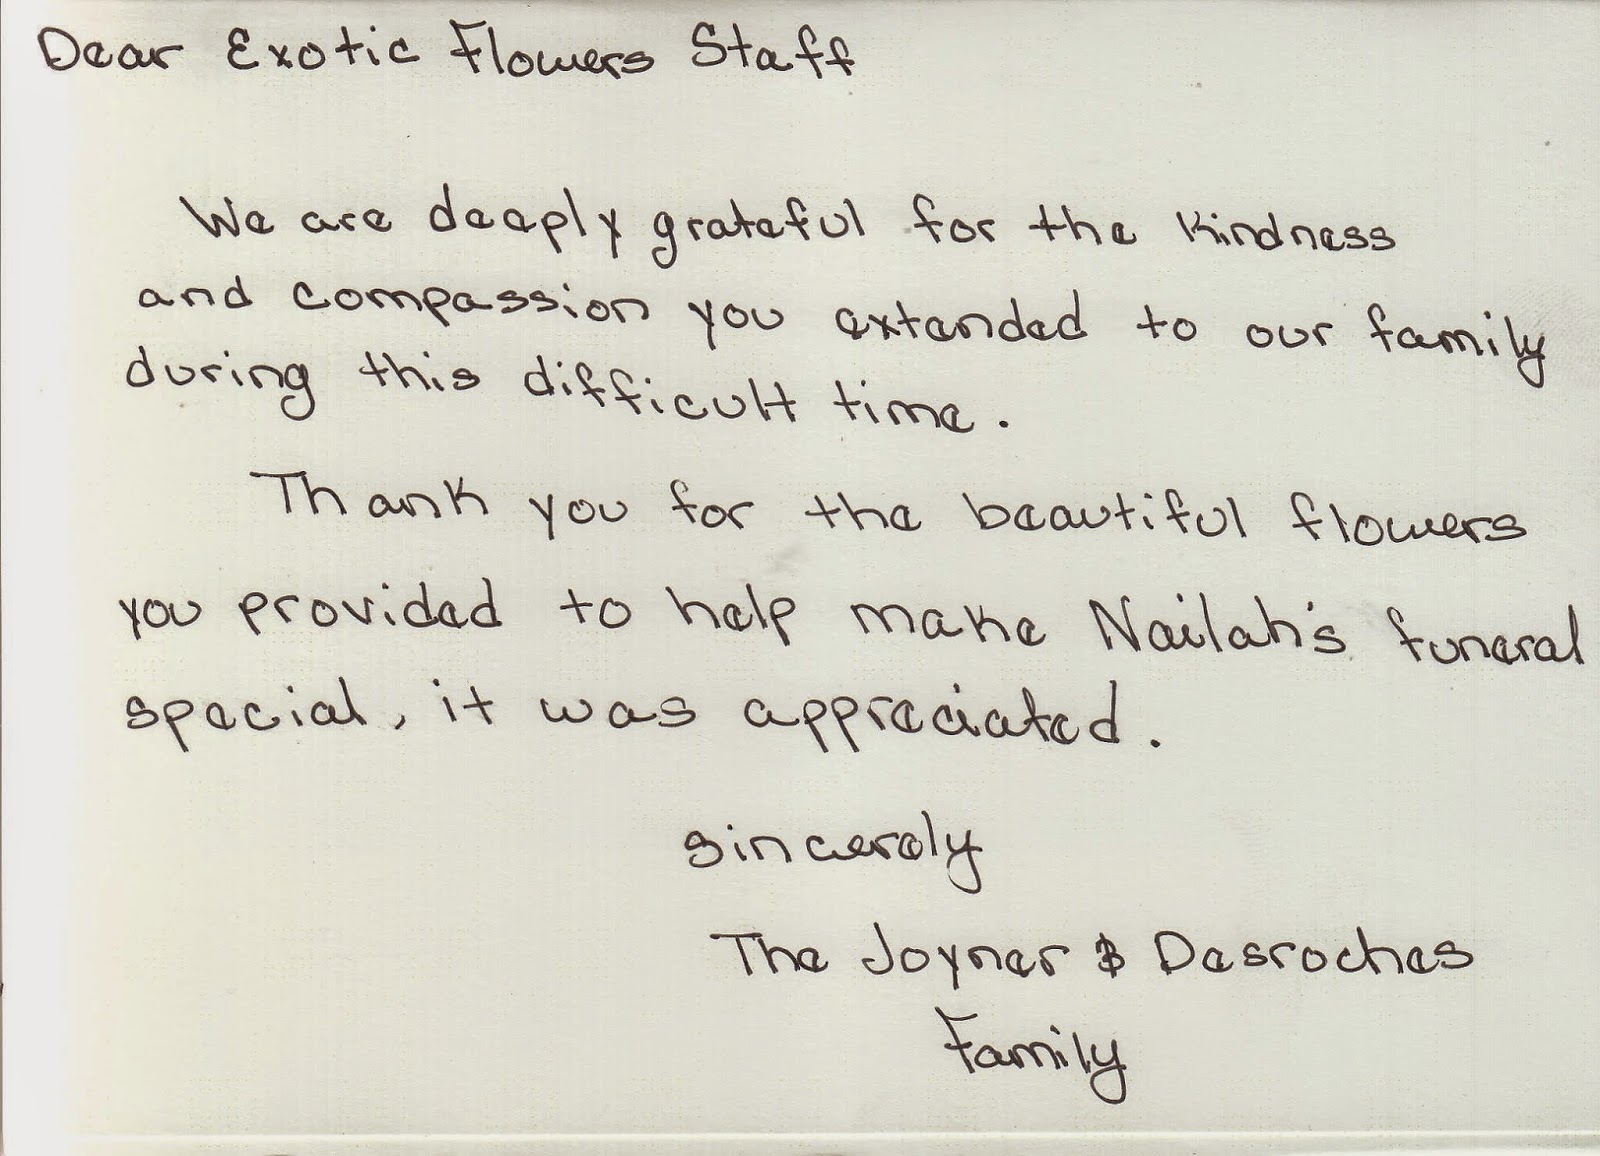 Dear Exotic Flowers Staff
We are deeply grateful for the kindness
and compassion you extended to our family
during this difficult time.
Thank you for the beautiful flowers
you provided to help make Nailah's funeral
special, it was appreciated.
sincerely
The Joyner & Desroches
Family